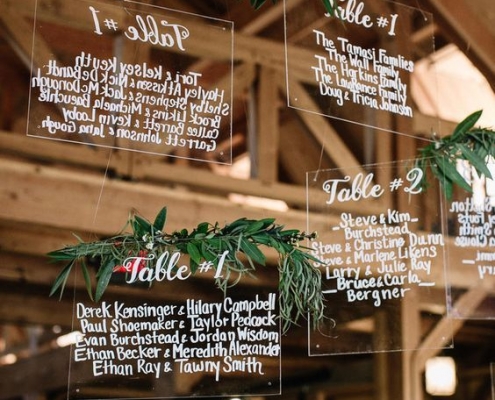 Table #1
Tori & Kelsey Keyth
Hayley Atkisson & Nick DeBandt
Shelby Stephens & Jack McDonough
Brock Likins & Michaela
Callee Barrett & Kevin Looby
Garrett Johnson & Jana Gough
Table #1
The Tamasi Families
The Wall Family
The Harkins Family
The Lawrance Family
Doug & Tricia Johnson
Table #2
Steve & Kim
Burchstead
Steve & Christine Dunn
Steve & Marlene Likens
Larry & Julie Ray
Bruce & Carla
Bergner
Table #1
Derek Kensinger & Hilary Campbell
Paul Shoemaker & Taylor Peacock
Evan Burchstead & Jordan Wisdom
Ethan Becker & Meredith Alexander
Ethan Ray & Tawny Smith